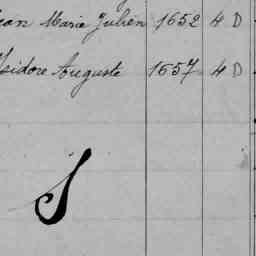 Jean Marie Julien 1652 4 D
Isidore Auguste 1657 4 D
S